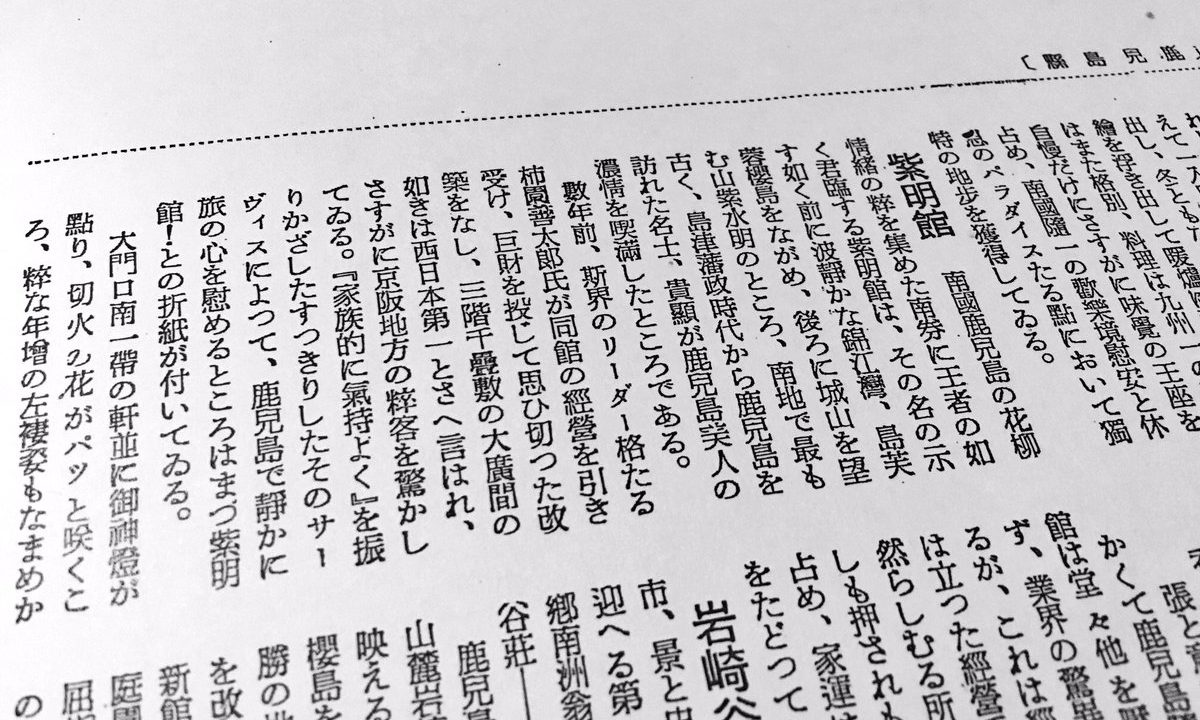 鹿兒島縣
えて一
出し、冬とも
繪を浮き出して暖爐に
はまた格別、料理は九州一の
自慢だけにさすがに味覺の王座を
占め、南國隨一の歡樂境慰安と休
息のパラダイスたる點において獨
特の地步を獲得してゐる。
紫明館 南國鹿兒島の花柳
情緒の粹を集めた南券に王者の如
く君臨する紫明館は、その名の示
す如く前に波靜かな錦江灣、島芙
蓉櫻島をながめ、後ろに城山を望
む山紫水明のところ、南地で最も
古く、島津藩政時代から鹿兒島を
訪れた名士、貴顯が鹿兒島美人の
濃情を喫滿したところである。
數年前、斯界のリーダー格たる
柿園善太郎氏が同館の經營を引き
受け、巨財を投じて思ひ切つた改
築をなし、三階千疊敷の大廣間の
如きは西日本第一とさへ言はれ、
さすがに京阪地方の粹客を驚かし
てゐる。『家族的に氣持よく』を振
りかざしたすつきりしたそのサー
ヴィスによつて、鹿兒島で靜かに
旅の心を慰めるところはまづ紫明
館!との折紙が付いてゐる。
大門口南一帶の軒並に御神燈が
點り、切火の花がパッと咲くこ
ろ、粹な年增の左褄姿もなまめか
張と
かくて鹿兒島
館は堂々他を
ず、業界の驚
るが、これは
は立つた經營
然らしむる所
しも押されも
占め、家運
をたどつて
岩崎
市、景と
迎へる第
鄕南洲翁
谷莊――
鹿兒
山麓岩
映える
櫻島を
勝の
新館
を改
庭
屈
の